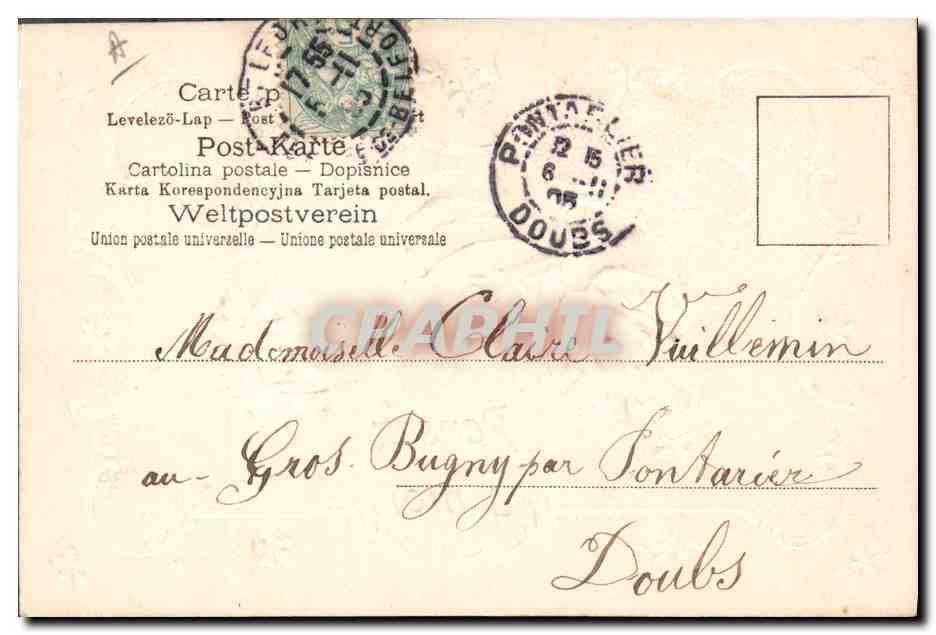 A
Carte p
Levelező-Lap — Post
Post-Karte
Cartolina postale — Dopisnice
Karta Korespondencyjna Tarjeta postal.
Weltpostverein
Union postale universelle — Unione postale universale
BELFORT
17 55
5 -11
PONTARLIER
12 15
6 -11
05
DOUBS
CPAPHIL
Mademoiselle Claire Vuillemin
au Gros Bugny par Pontarier
Doubs